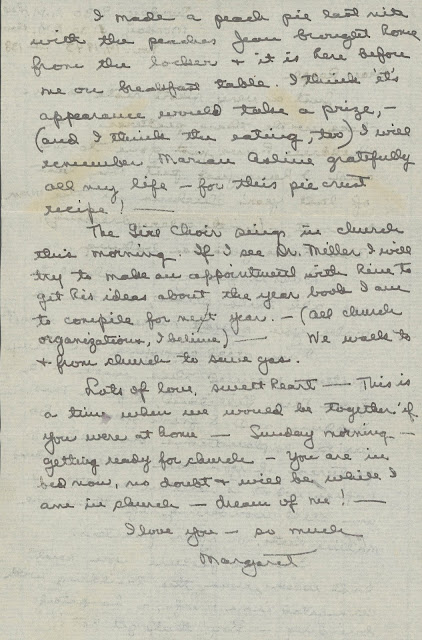 I made a peach pie last nite
with the peaches Jean brought home
from the locker & it is here before
me on breakfast table. I think it's
appearance would take a prize, –
(and I think the eating, too) I will
remember Marian Asline gratefully
all my life – for this pie crust
recipe! —
The Girl Choir sings in church
this morning. If I see Dr. Miller I will
try to make an appointment with him to
get his ideas about the year book I am
to compile for next year. – (all church
organizations, I believe) — We walk to
& from church to save gas.
Lots of love, sweetheart — This is
a time when we would be together if
you were at home — Sunday morning —
getting ready for church – You are in
bed now, no doubt & will be while I
am in church – dream of me! —
I love you – so much
Margaret